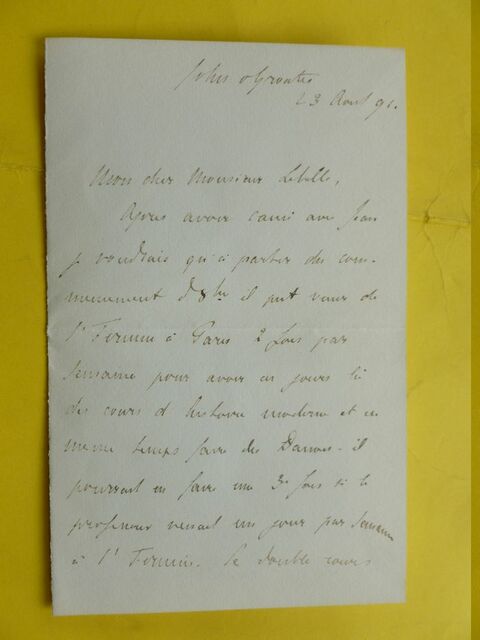 John o Groats
23 Aout 91.
Mon cher Monsieur Lebelle,
Après avoir causé avec Jean
je voudrais qu'à partir du com-
mencement d'8bre il put venir de
St Firmin à Paris 2 fois par
semaine pour avoir ces jours là
des cours d'histoire moderne et en
meme temps faire des Danses - il
pourrait en faire une 3e fois si le
professeur venait un jour par semaine
à St Firmin. Ce double cours